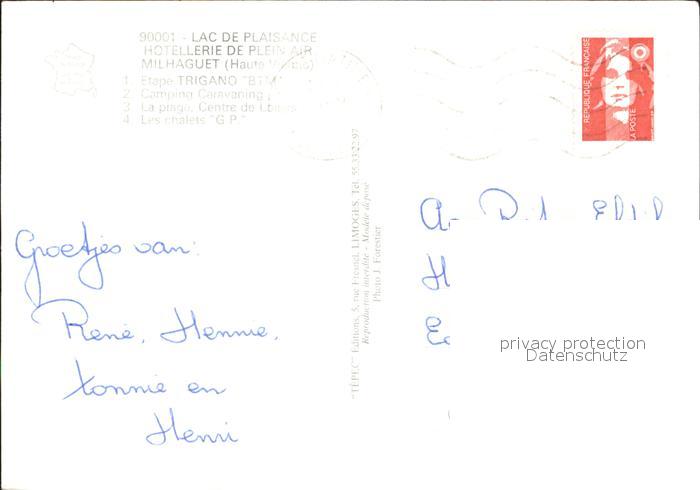 90001 - LAC DE PLAISANCE
HOTELLERIE DE PLEIN AIR
MILHAGUET (Haute Vienne)
1. Etape TRIGANO "BTM"
2. Camping Caravaning
3. La plage, Centre de Loisirs
4. Les chalets "G.P."
REPUBLIQUE FRANÇAISE
LA POSTE
"TÉPEC" Editions, 5, rue Fresnel, LIMOGES, Tél. 55.33.22.97
Reproduction interdite - Modèle déposé
Photo J. Forestier
Groetjes van:
René, Hennie,
Tonnie en
Henri
privacy protection
Datenschutz